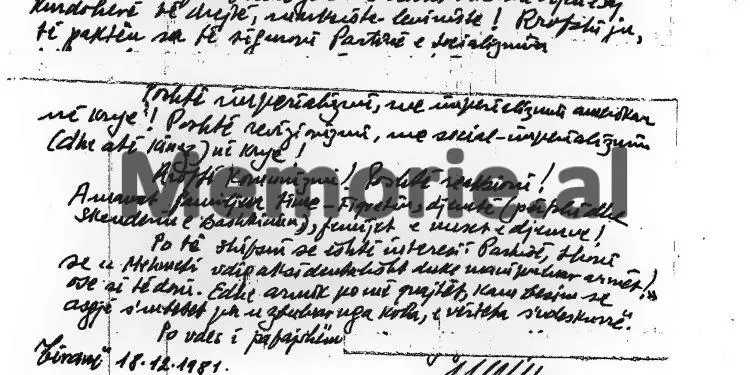 kurdoherë të drejtë, marksiste-leniniste! Rroftë ju,
të paktën sa të siguroni Partinë e socializmin
Poshtë imperializmi, me imperializmin amerikan
në krye! Poshtë revizionizmi, me social-imperializmin
(dhe atë kinez) në krye!
Rroftë Komunizmi! Poshtë reaksioni!
Memorie.al
familjen time - Fiqretin, djemtë (përfshi dhe
Skënderin e Bashkimin), fëmijët e nuset e djemve!
Po të shifni se është interesi Partisë, thoni
se u Mehmeti vdiq aksidentalisht duke manipuluar armët!
ose si të doni. Edhe armik po më quajtët, kam besim se
asgjë s'mbetet pa u zbuluar nga koha, e vërteta s'vdes kurrë.
Po vdes i pafajshëm
Tiranë 18.12.1981.